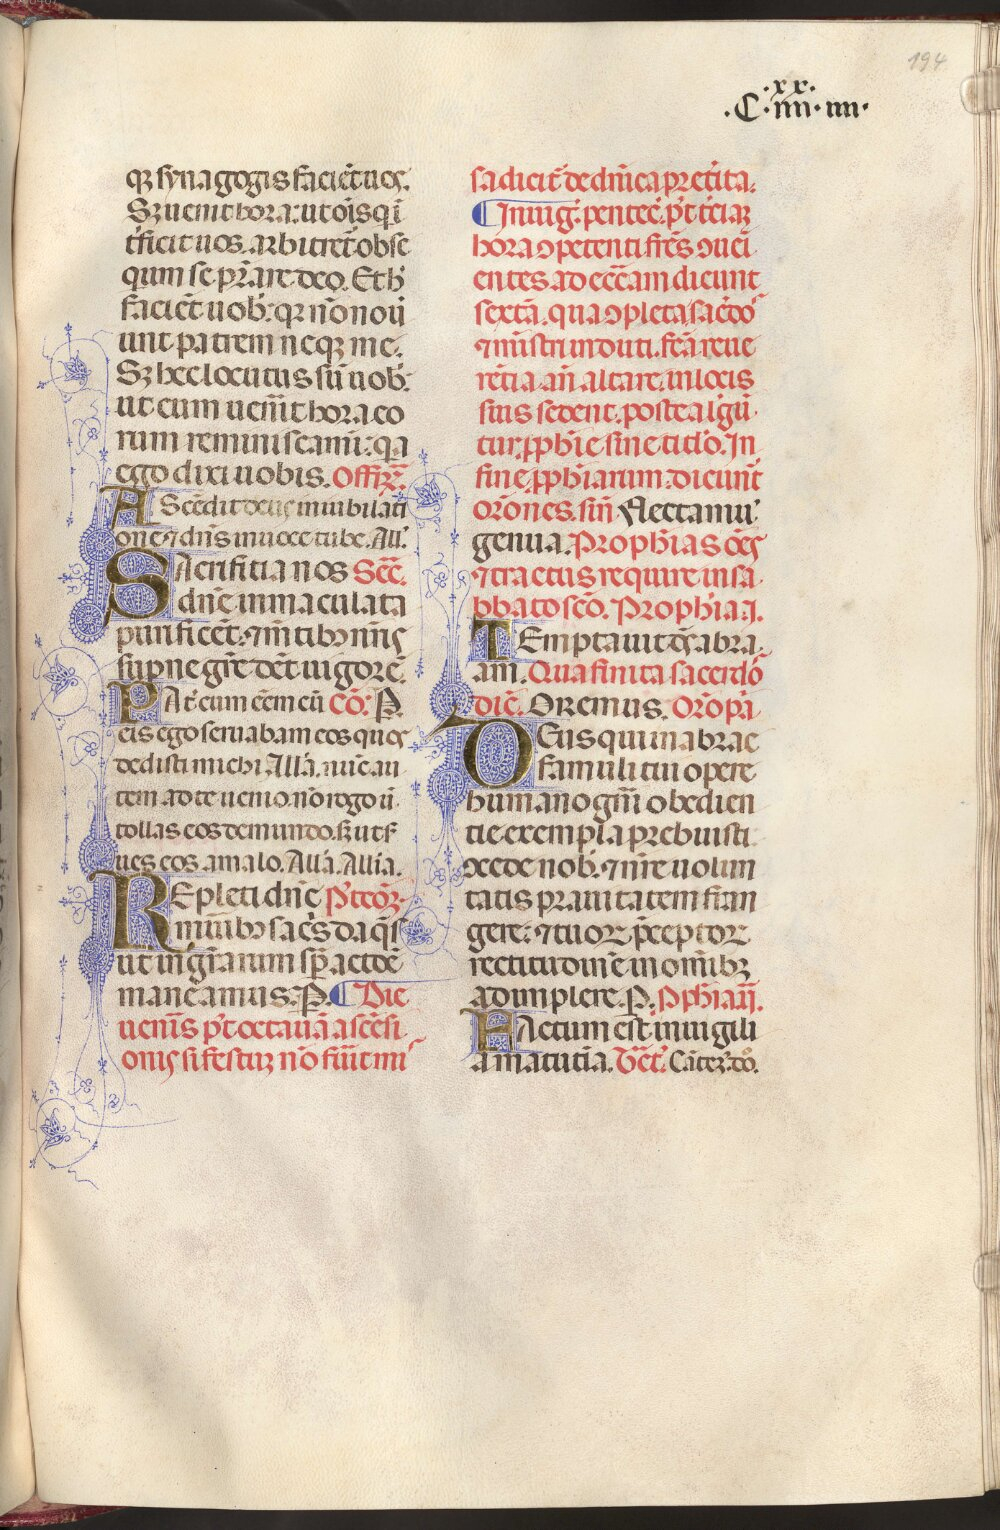 194
.C.xx iiii.iiii.
qꝫ synagogis faciẽt uos.
Sꝫ uenit hora: ut oĩs qui
ĩtficit uos. arbitret̃ obse
quium se p̃stare deo. Et h̃
faciẽt uob̃: qꝛ nõ noũ
unt patrem neqꝫ me.
Sꝫ hec locutus sũ uob̃:
ut cum uenĩt hora eo
rum reminiscamĩ: qa
ego dixi uobis. Offẽ.
AScẽdit deus in iubilati
one ⁊ dñs in uoce tube. All'.
SAcrificia nos Sẽc.
dñe inmaculata
purificẽt: ⁊ mẽtibꝫ nr̃is
sup̃ne gr̃e dẽt uigorẽ.
PAt̃ cum eẽm cũ Cõ. P̃.
eis ego seruabam eos quos
dedisti michi All'a. nũc au
tem ad te uenio. nõ rogo ũ
tollas eos de mundo. sꝫ ut s̃
ues eos a malo. All'a. All'ia.
REpleti dñe P'tcõꝫ.
munĩbꝫ sac̃s da q̃s
ut in gr̃arum sp̃ actõe
maneamus. P̃. ¶ Die
uenẽis p't octauã ascẽsi
onis si festuꝫ nõ fũit mis
sa dicit̃ de dñica pret̃ita.
¶ In uig̃. pentec̃. p't t̃ciaꝫ
hora ꝯpetenti fr̃es ꝯueĩ
entes ad ecc̃am dicunt
sextã. qua ꝯpleta sac̃dos
⁊ mĩstri induti. fc̃a reue
rẽtia añ altare. in locis
suis sedent. postea lgũ
tur. ꝓph̃ie sine titl'o. In
fine ꝓph̃iarum dicunt̃
orõnes. sin̄ Flectamus
genua. Proph̃ias oẽs
⁊ tractus require in sa
bbato scõ. Proph̃ia .I.
TEmptauit dẽs abra
am. Qua finita sacerdos
dic̃. Oremus. Orõ pã
DEus qui in abrae
famuli tui opere
humano gñi obedien
tie exempla prebuisti
ꝯcede nob̃. ⁊ nr̃e uolun
tatis prauitatem fran
gere: ⁊ tuoꝝ p̃ceptoꝝ
rectitudinẽ in omĩbꝫ
adimplere. P̃. Pph̃ia .ii.
FActum est in uigili
a matutĩa. Tr̃ct̃. Cãtem̃ dõ.